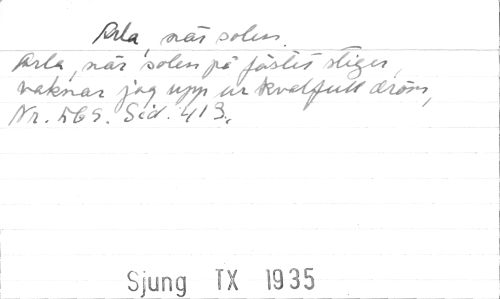 Arla, när solen.
Arla, när solen på fästet stiger,
vaknar jag upp ur kvalfull dröm,
Nr. 569. Sid. 413.
Sjung TX 1935